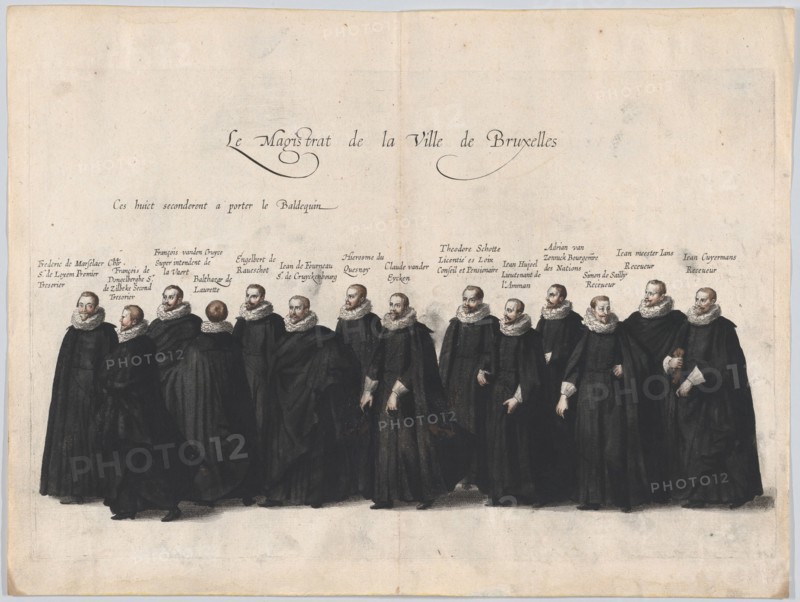 Le Magistrat de la Ville de Bruxelles
Ces huict seconderent a porter le Baldequin
Frederic de Marselaer
Sr. de Loyem Premier
Tresorier
Chlr.
François de
Dongelberghe Sr.
de Zilleke Second
Tresorier
François vanden Cruyce
Super intendent de
la Vaert
Balthazar de
Laurette
Engelbert de
Raueschot
Iean de Fourneau
Sr. de Cruyckenbourg
Hierosme du
Quesnoy
Claude vander
Eycken
Theodore Schotte
Licentie es Loix
Conseil et Pensionaire
Iean Huioel
Lieutenant de
l'Amman
Adrian van
Bourgmre
des Nations
Simon de Sailly
Receueur
Iean meester Ians
Receueur
Iean Cuyermans
Receueur
PHOTO12
PHOTO12
PHOTO12
PHOTO12
PHOTO12
PHOTO12
PHOTO12